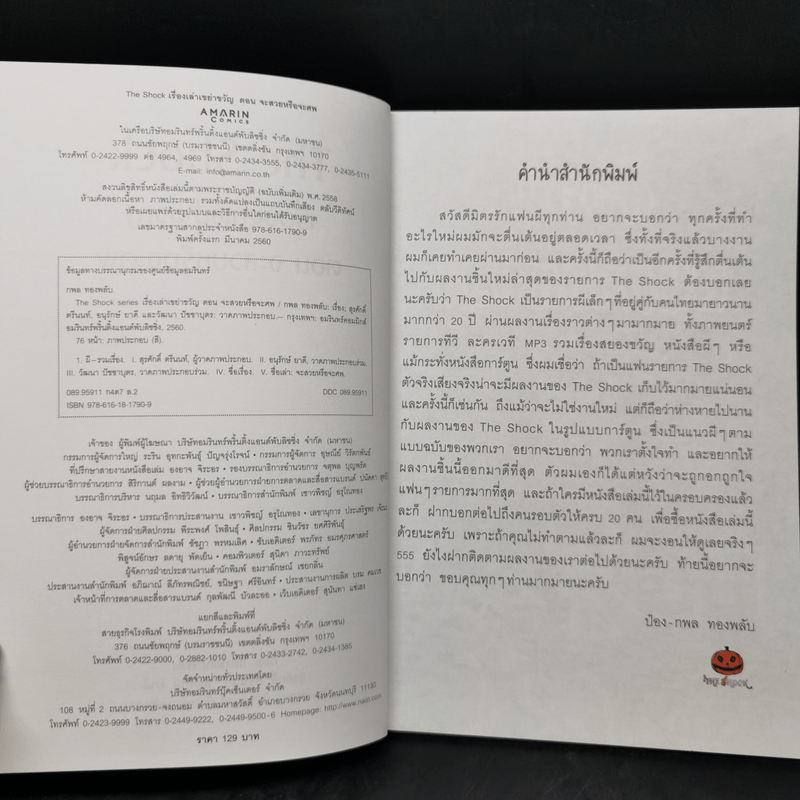 The Shock เรื่องเล่าเขย่าขวัญ ตอน จะสวยหรือจะศพ
AMARIN
COMICS
ในเครือบริษัทอมรินทร์พริ้นติ้งแอนด์พับลิชชิ่ง จำกัด (มหาชน)
378 ถนนชัยพฤกษ์ (บรมราชชนนี) เขตตลิ่งชัน กรุงเทพฯ 10170
โทรศัพท์ 0-2422-9999 ต่อ 4964, 4969 โทรสาร 0-2434-3555, 0-2434-3777, 0-2435-5111
E-mail: info@amarin.co.th
สงวนลิขสิทธิ์หนังสือเล่มนี้ตามพระราชบัญญัติ (ฉบับเพิ่มเติม) พ.ศ.2558
ห้ามคัดลอกเนื้อหา ภาพประกอบ รวมทั้งดัดแปลงเป็นแถบบันทึกเสียง ตลับวีดิทัศน์
หรือเผยแพร่ด้วยรูปแบบและวิธีการอื่นใดก่อนได้รับอนุญาต
เลขมาตรฐานสากลประจำหนังสือ 978-616-18-1790-9
พิมพ์ครั้งแรก มีนาคม 2560
ข้อมูลทางบรรณานุกรมของศูนย์ข้อมูลอมรินทร์
กพล ทองพลับ.
The Shock series เรื่องเล่าเขย่าขวัญ ตอน จะสวยหรือจะศพ / กพล ทองพลับ: เรื่อง; สุรศักดิ์
ตรีนนท์, อนุรักษ์ ยาดี และวัฒนา ปัชชาบุตร: วาดภาพประกอบ.-- กรุงเทพฯ: อมรินทร์คอมมิกส์
อมรินทร์พริ้นติ้งแอนด์พับลิชชิ่ง, 2560.
76 หน้า: ภาพประกอบ (สี).
1. ผี--รวมเรื่อง. I. สุรศักดิ์ ตรีนนท์, ผู้วาดภาพประกอบ. II. อนุรักษ์ ยาดี, วาดภาพประกอบร่วม.
III. วัฒนา ปัชชาบุตร, วาดภาพประกอบร่วม. IV. ชื่อเรื่อง. V. ชื่อเล่า: จะสวยหรือจะศพ.
089.95911 ก4ด7 ล.2 DDC 089.95911
ISBN 978-616-18-1790-9
เจ้าของ ผู้พิมพ์ผู้โฆษณา บริษัทอมรินทร์พริ้นติ้งแอนด์พับลิชชิ่ง จำกัด (มหาชน)
กรรมการผู้จัดการใหญ่ ระริน อุทกะพันธุ์ ปัญจรุ่งโรจน์ • กรรมการผู้จัดการ อุษณีย์ วิรัตกพันธ์
ที่ปรึกษาสายงานหนังสือเล่ม องอาจ จิระอร • รองบรรณาธิการอำนวยการ จตุพล บุญพรัด
ผู้ช่วยบรรณาธิการอำนวยการ สิริกานต์ ผลงาม • ผู้ช่วยผู้อำนวยการฝ่ายการตลาดและสื่อสารแบรนด์ ปนัดดา
บรรณาธิการบริหาร นฤมล อิทธิวิวัฒน์ • บรรณาธิการสำนักพิมพ์ เชาวพิชญ์ อรุโณทอง
บรรณาธิการ องอาจ จิระอร • บรรณาธิการประสานงาน เชาวพิชญ์ อรุโณทอง • เลขานุการ ประเสริฐพร
ผู้จัดการฝ่ายศิลปกรรม พีระพงศ์ โพสินธุ์ • ศิลปกรรม ชินวัชร ยศศิริพันธุ์
ผู้อำนวยการฝ่ายจัดการสำนักพิมพ์ ชัชฎา พรหมเลิศ • ซับเอดิเตอร์ พรภัทร อมรศุภศาสตร์
พิสูจน์อักษร ลดายุ พัดเย็น • คอมพิวเตอร์ สุนิดา ภาวะทรัพย์
ผู้จัดการฝ่ายประสานงานสำนักพิมพ์ อมราลักษณ์ เชยกลิ่น
ประสานงานสำนักพิมพ์ อภิฌาณ์ ลีภัทรพณิชย์, ขนิษฐา ศรีอินทร์ • ประสานงานการผลิต
เจ้าหน้าที่การตลาดและสื่อสารแบรนด์ กุลพัฒนี บัวละออ • เว็บเอดิเตอร์ สุนันทา แซ่เฮง
แยกสีและพิมพ์ที่
สายธุรกิจโรงพิมพ์ บริษัทอมรินทร์พริ้นติ้งแอนด์พับลิชชิ่ง จำกัด (มหาชน)
376 ถนนชัยพฤกษ์ (บรมราชชนนี) เขตตลิ่งชัน กรุงเทพฯ 10170
โทรศัพท์ 0-2422-9000, 0-2882-1010 โทรสาร 0-2433-2742, 0-2434-1385
จัดจำหน่ายทั่วประเทศโดย
บริษัทอมรินทร์บุ๊คเซ็นเตอร์ จำกัด
108 หมู่ที่ 2 ถนนบางกรวย-จงถนอม ตำบลมหาสวัสดิ์ อำเภอบางกรวย จังหวัดนนทบุรี 11130
โทรศัพท์ 0-2423-9999 โทรสาร 0-2449-9222, 0-2449-9500-6 Homepage: http://www.naiin.com
ราคา 129 บาท
คำนำสำนักพิมพ์
สวัสดีมิตรรักแฟนผีทุกท่าน อยากจะบอกว่า ทุกครั้งที่ทำ
อะไรใหม่ผมมักจะตื่นเต้นอยู่ตลอดเวลา ซึ่งทั้งที่จริงแล้วบางงาน
ผมก็เคยทำเคยผ่านมาก่อน และครั้งนี้ก็ถือว่าเป็นอีกครั้งที่รู้สึกตื่นเต้น
ไปกับผลงานชิ้นใหม่ล่าสุดของรายการ The Shock ต้องบอกเลย
นะครับว่า The Shock เป็นรายการผีเล็กๆที่อยู่คู่กับคนไทยมายาวนาน
มากกว่า 20 ปี ผ่านผลงานเรื่องราวต่างๆมามากมาย ทั้งภาพยนตร์
รายการทีวี ละครเวที MP3 รวมเรื่องสยองขวัญ หนังสือผีๆ หรือ
แม้กระทั่งหนังสือการ์ตูน ซึ่งผมเชื่อว่า ถ้าเป็นแฟนรายการ The Shock
ตัวจริงเสียงจริงน่าจะมีผลงานของ The Shock เก็บไว้มากมายแน่นอน
และครั้งนี้ก็เช่นกัน ถึงแม้ว่าจะไม่ใช่งานใหม่ แต่ก็ถือว่าห่างหายไปนาน
กับผลงานของ The Shock ในรูปแบบการ์ตูน ซึ่งเป็นแนวผีๆตาม
แบบฉบับของพวกเรา อยากจะบอกว่า พวกเราตั้งใจทำ และอยากให้
ผลงานชิ้นนี้ออกมาดีที่สุด ตัวผมเองก็ได้แต่หวังว่าจะถูกอกถูกใจ
แฟนๆรายการมากที่สุด และถ้าใครมีหนังสือเล่มนี้ไว้ในครอบครองแล้ว
ละก็ ฝากบอกต่อไปถึงคนรอบตัวให้ครบ 20 คน เพื่อซื้อหนังสือเล่มนี้
ด้วยนะครับ เพราะถ้าคุณไม่ทำตามแล้วละก็ ผมจะงอนให้ดูเลยจริงๆ
555 ยังไงฝากติดตามผลงานของเราต่อไปด้วยนะครับ ท้ายนี้อยากจะ
บอกว่า ขอบคุณทุกๆท่านมากมายนะครับ
ป๋อง-กพล ทองพลับ
THE SHOCK